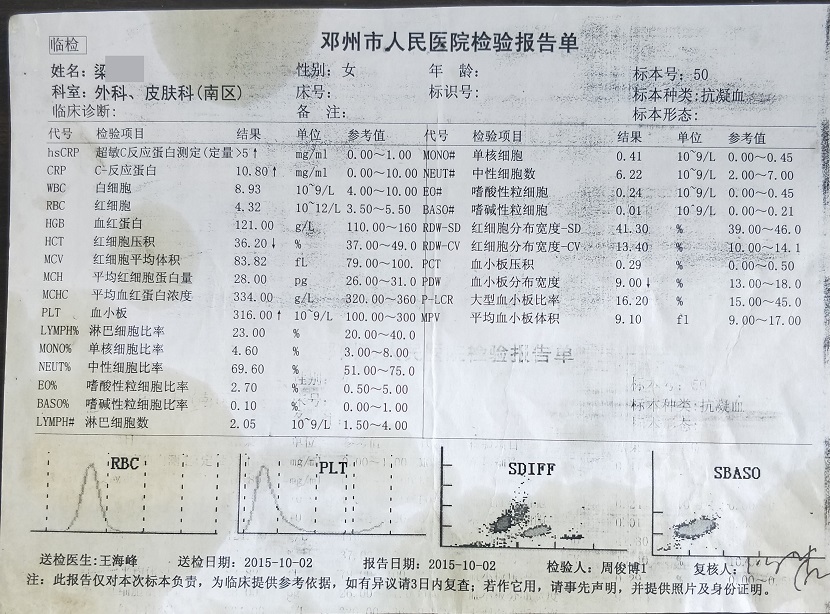 临检
邓州市人民医院检验报告单
姓名: 梁 性别: 女 年 龄: 标本号: 50
科室: 外科、皮肤科(南区) 床号: 标识号: 标本种类:抗凝血
临床诊断: 备 注: 标本形态:
代号 检验项目 结果 单位 参考值 代号 检验项目 结果 单位 参考值
hsCRP 超敏C反应蛋白测定(定量 >5↑ mg/ml 0.00~1.00 MONO# 单核细胞 0.41 10^9/L 0.00~0.45
CRP C-反应蛋白 10.80↑ mg/ml 0.00~10.00 NEUT# 中性细胞数 6.22 10^9/L 2.00~7.00
WBC 白细胞 8.93 10^9/L 4.00~10.00 EO# 嗜酸性粒细胞 0.24 10^9/L 0.00~0.45
RBC 红细胞 4.32 10^12/L 3.50~5.50 BASO# 嗜碱性粒细胞 0.01 10^9/L 0.00~0.21
HGB 血红蛋白 121.00 g/L 110.00~160 RDW-SD 红细胞分布宽度-SD 41.30 % 39.00~46.0
HCT 红细胞压积 36.20↓ % 37.00~49.0 RDW-CV 红细胞分布宽度-CV 13.40 % 10.00~14.1
MCV 红细胞平均体积 83.82 fL 79.00~100. PCT 血小板压积 0.29 % 0.00~0.50
MCH 平均红细胞蛋白量 28.00 pg 26.00~31.0 PDW 血小板分布宽度 9.00↓ % 13.00~18.0
MCHC 平均血红蛋白浓度 334.00 g/L 320.00~360 P-LCR 大型血小板比率 16.20 % 15.00~45.0
PLT 血小板 316.00↑ 10^9/L 100.00~300 MPV 平均血小板体积 9.10 fl 9.00~17.00
LYMPH% 淋巴细胞比率 23.00 % 20.00~40.0
MONO% 单核细胞比率 4.60 % 3.00~8.00
NEUT% 中性细胞比率 69.60 % 51.00~75.0
EO% 嗜酸性粒细胞比率 2.70 % 0.50~5.00
BASO% 嗜碱性粒细胞比率 0.10 % 0.00~1.00
LYMPH# 淋巴细胞数 2.05 10^9/L 1.50~4.00
标本种类:抗凝血
RBC PLT SDIFF SBASO
送检医生:王海峰 送检日期: 2015-10-02 报告日期: 2015-10-02 检验人: 周俊博1 复核人:
注: 此报告仅对本次标本负责,为临床提供参考依据,如有异议请3日内复查;若作它用,请事先声明,并提供照片及身份证明。